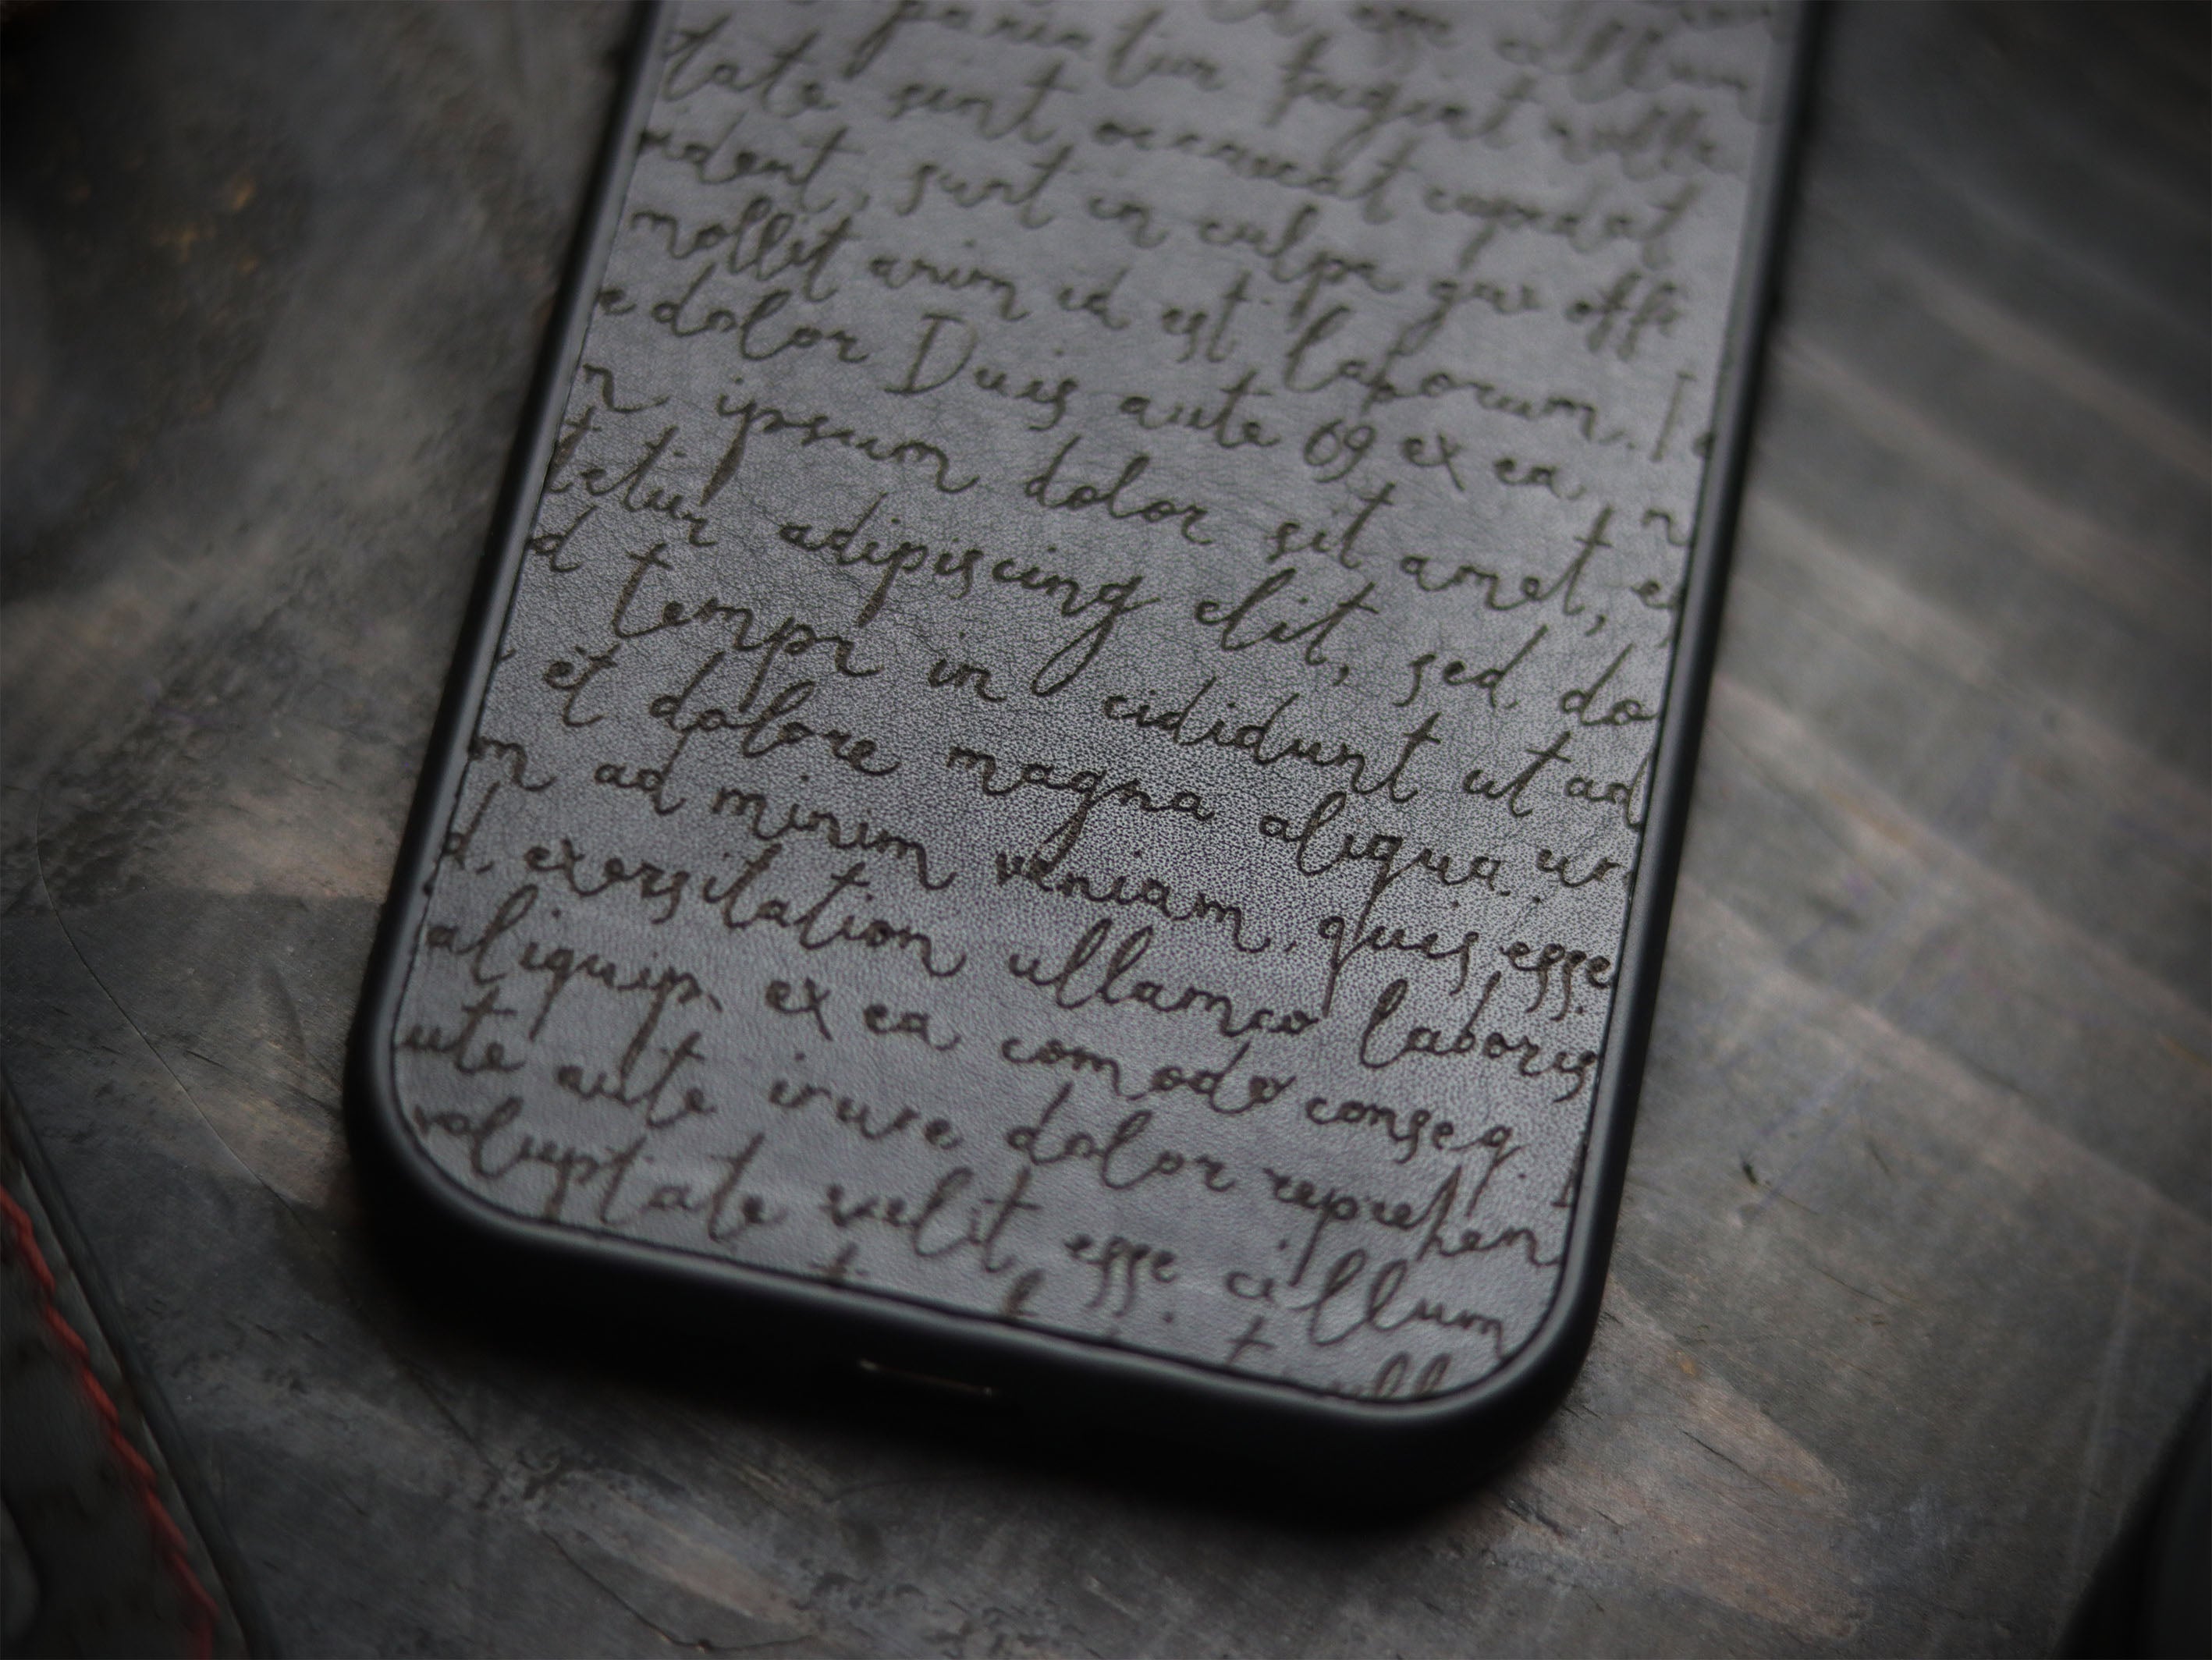 esse cillum
pariatur fugiat nulla
tate sint occaecat cupidat
ident, sunt in culpa qui offi
mollit anim id est laborum. L
e dolor Duis aute 69 ex ea, n
n ipsum dolor sit amet, e
tetur adipiscing elit, sed, do
d tempr in cididunt ut ad
et dolore magna aliqua. ur
m ad minim veniam, quis esse
d, exersitation ullamco laboris
aliquip, ex ea comodo conseq. D
ute aute irure, dolor reprehen
voluptate velit esse cillum